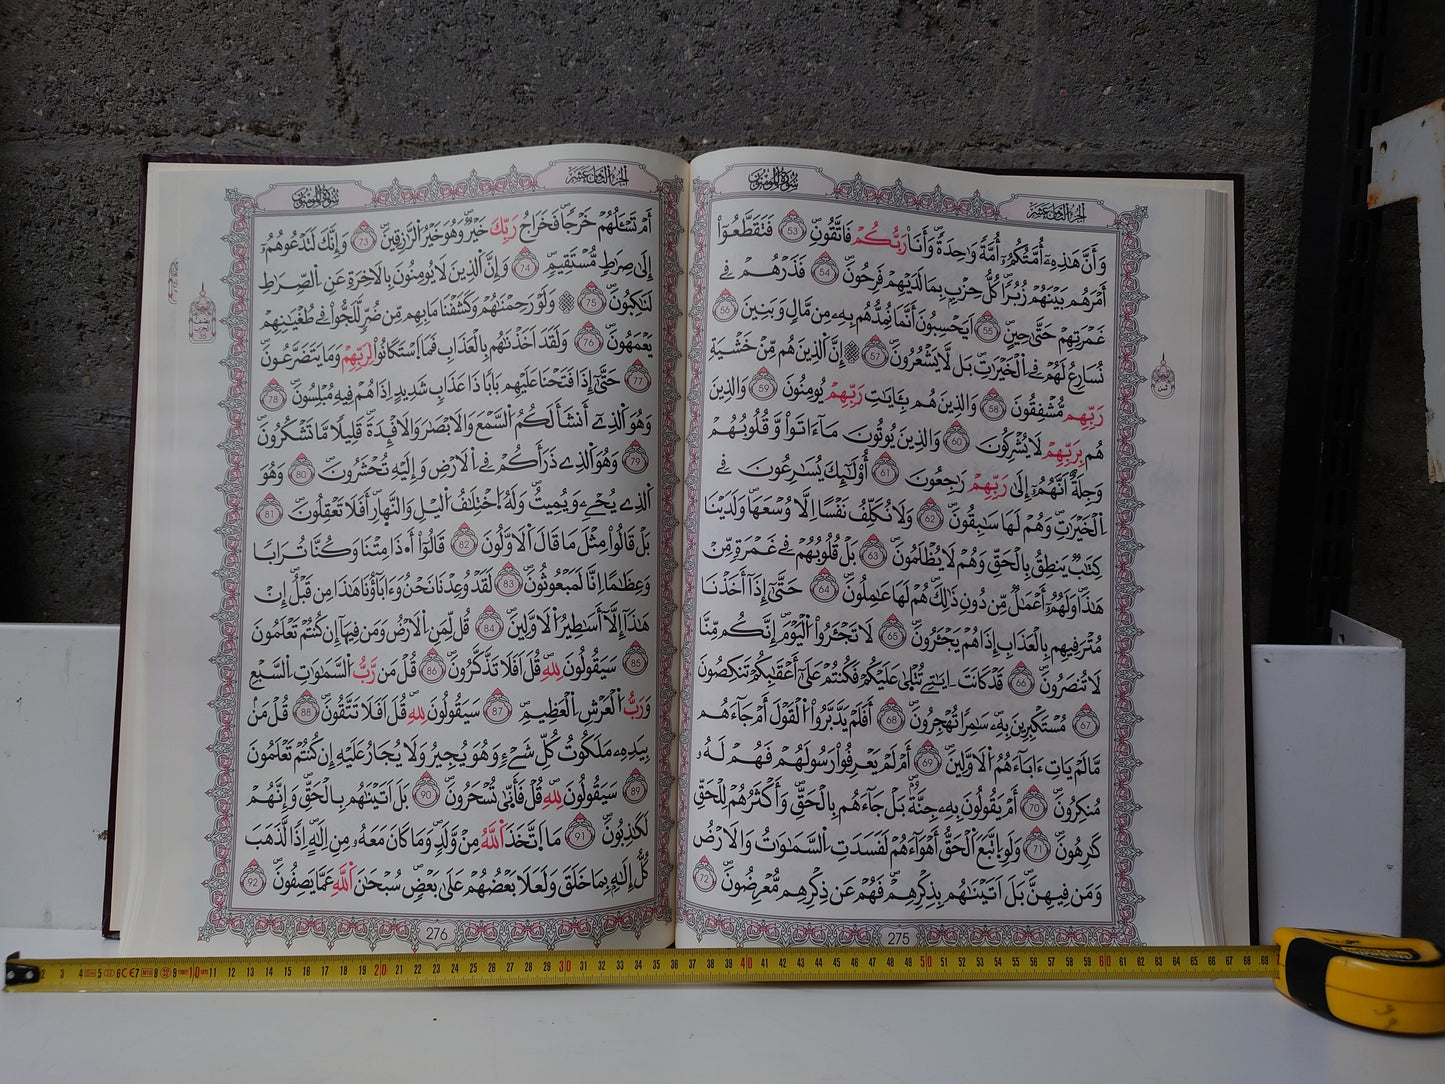 سورة المؤمنون
الجزء الثامن عشر
وَأَنَّ هَٰذِهِۦٓ أُمَّتُكُمُۥٓ أُمَّةٗ وَٰحِدَةٗ وَأَنَا رَبُّكُمْ فَاتَّقُونِۖ 53 فَتَقَطَّعُوٓاْ
أَمْرَهُم بَيْنَهُمْ زُبُراٗ كُلُّ حِزْبِۢ بِمَا لَدَيْهِمْ فَرِحُونَۖ 54 فَذَرْهُمْ فِے
غَمْرَتِهِمْ حَتَّىٰ حِينٍۖ 55 اَيَحْسِبُونَ أَنَّمَا نُمِدُّهُم بِهِۦ مِن مَّالٖ وَبَنِينَ 56
نُسَارِعُ لَهُمْ فِے اِ۬لْخَيْرَٰتِۖ بَل لَّا يَشْعُرُونَۖ 57 إِنَّ اَ۬لذِينَ هُم مِّنْ خَشْيَةِ
رَبِّهِم مُّشْفِقُونَ 58 وَالذِينَ هُم بِـَٔايَٰتِ رَبِّهِمْ يُومِنُونَ 59 وَالذِينَ
هُم بِرَبِّهِمْ لَا يُشْرِكُونَ 60 وَالذِينَ يُوتُونَ مَآ ءَاتَواْ وَّقُلُوبُهُمْ
وَجِلَةٌ اَنَّهُمُۥٓ إِلَىٰ رَبِّهِمْ رَٰجِعُونَ 61 أُوْلَٰٓئِكَ يُسَٰرِعُونَ فِے
اِ۬لْخَيْرَٰتِ وَهُمْ لَهَا سَٰبِقُونَۖ 62 وَلَا نُكَلِّفُ نَفْساً اِلَّا وُسْعَهَاۖ وَلَدَيْنَا
كِتَٰبٞ يَنطِقُ بِالْحَقِّ وَهُمْ لَا يُظْلَمُونَۖ 63 بَلْ قُلُوبُهُمْ فِے غَمْرَةٖ مِّنْ
هَٰذَا وَلَهُمُۥٓ أَعْمَٰلٞ مِّن دُونِ ذَٰلِكَ هُمْ لَهَا عَٰمِلُونَۖ 64 حَتَّىٰٓ إِذَآ أَخَذْنَا
مُتْرَفِيهِم بِالْعَذَابِ إِذَا هُمْ يَجْـَٔرُونَۖ 65 لَا تَجْـَٔرُواْ اُ۬لْيَوْمَۖ إِنَّكُم مِّنَّا
لَا تُنصَرُونَۖ 66 قَدْ كَانَتَ اٰيَٰتِے تُتْلَىٰ عَلَيْكُمْ فَكُنتُمْ عَلَىٰٓ أَعْقَٰبِكُمْ تَنكِصُونَ
67 مُسْتَكْبِرِينَ بِهِۦ سَٰمِراٗ تُهْجِرُونَۖ 68 أَفَلَمْ يَدَّبَّرُواْ اُ۬لْقَوْلَ أَمْ جَآءَهُم
مَّا لَمْ يَاتِ ءَابَآءَهُمُ اُ۬لَاوَّلِينَۖ 69 أَمْ لَمْ يَعْرِفُواْ رَسُولَهُمْ فَهُمْ لَهُۥ
مُنكِرُونَۖ 70 أَمْ يَقُولُونَ بِهِۦ جِنَّةُۢۖ بَلْ جَآءَهُم بِالْحَقِّ وَأَكْثَرُهُمْ لِلْحَقِّ
كَٰرِهُونَۖ 71 وَلَوِ اِ۪تَّبَعَ اَ۬لْحَقُّ أَهْوَآءَهُمْ لَفَسَدَتِ اِ۬لسَّمَٰوَٰتُ وَالَارْضُ
وَمَن فِيهِنَّۖ بَلَ اَتَيْنَٰهُم بِذِكْرِهِمْ فَهُمْ عَن ذِكْرِهِم مُّعْرِضُونَۖ 72
275
ثمن
الجزء الثامن عشر
سورة المؤمنون
أَمْ تَسْـَٔلُهُمْ خَرْجاٗ فَخَرَاجُ رَبِّكَ خَيْرٞۖ وَهُوَ خَيْرُ اُ۬لرَّٰزِقِينَۖ 73 وَإِنَّكَ لَتَدْعُوهُمُۥٓ
إِلَىٰ صِرَٰطٖ مُّسْتَقِيمٖۖ 74 وَإِنَّ اَ۬لذِينَ لَا يُومِنُونَ بِالَاخِرَةِ عَنِ اِ۬لصِّرَٰطِ
لَنَٰكِبُونَۖ 75 وَلَوْ رَحِمْنَٰهُمْ وَكَشَفْنَا مَا بِهِم مِّن ضُرّٖ لَّلَجُّواْ فِے طُغْيَٰنِهِمْ
يَعْمَهُونَۖ 76 وَلَقَدَ اَخَذْنَٰهُم بِالْعَذَابِ فَمَا اَ۪سْتَكَانُواْ لِرَبِّهِمْ وَمَا يَتَضَرَّعُونَۖ
77 حَتَّىٰٓ إِذَا فَتَحْنَا عَلَيْهِم بَاباٗ ذَا عَذَابٖ شَدِيدٍ اِذَا هُمْ فِيهِ مُبْلِسُونَۖ 78
وَهُوَ اَ۬لذِےٓ أَنشَأَ لَكُمُ اُ۬لسَّمْعَ وَالَابْصَٰرَ وَالَافْـِٕدَةَۖ قَلِيلاٗ مَّا تَشْكُرُونَۖ
79 وَهُوَ اَ۬لذِے ذَرَأَكُمْ فِے اِ۬لَارْضِ وَإِلَيْهِ تُحْشَرُونَۖ 80 وَهُوَ
اَ۬لذِے يُحْيِۦ وَيُمِيتُۖ وَلَهُ اُ۪خْتِلَٰفُ اُ۬ليْلِ وَالنَّهَارِۖ أَفَلَا تَعْقِلُونَۖ 81
بَلْ قَالُواْ مِثْلَ مَا قَالَ اَ۬لَاوَّلُونَۖ 82 قَالُوٓاْ أَ.ذَا مِتْنَا وَكُنَّا تُرَاباٗ
وَعِظَٰماً اِنَّا لَمَبْعُوثُونَۖ 83 لَقَدْ وُعِدْنَا نَحْنُ وَءَابَآؤُنَا هَٰذَا مِن قَبْلُۖ إِنْ
هَٰذَآ إِلَّآ أَسَٰطِيرُ اُ۬لَاوَّلِينَۖ 84 قُل لِّمَنِ اِ۬لَارْضُ وَمَن فِيهَآ إِن كُنتُمْ تَعْلَمُونَ
85 سَيَقُولُونَ لِلهِۖ قُلَ اَفَلَا تَذَّكَّرُونَۖ 86 قُلْ مَن رَّبُّ اُ۬لسَّمَٰوَٰتِ اِ۬لسَّبْعِ
وَرَبُّ اُ۬لْعَرْشِ اِ۬لْعَظِيمِۖ 87 سَيَقُولُونَ لِلهِۖ قُلَ اَفَلَا تَتَّقُونَۖ 88 قُلْ مَنۢ
بِيَدِهِۦ مَلَكُوتُ كُلِّ شَےْءٖ وَهُوَ يُجِيرُ وَلَا يُجَارُ عَلَيْهِ إِن كُنتُمْ تَعْلَمُونَ
89 سَيَقُولُونَ لِلهِۖ قُلْ فَأَنَّىٰ تُسْحَرُونَۖ 90 بَلَ اَتَيْنَٰهُم بِالْحَقِّ وَإِنَّهُمْ
لَكَٰذِبُونَۖ 91 مَا اَ۪تَّخَذَ اَ۬للَّهُ مِنْ وَّلَدٖ وَمَا كَانَ مَعَهُۥ مِنِ اِلَٰهٍۖ اِذاٗ لَّذَهَبَ
كُلُّ إِلَٰهِۢ بِمَا خَلَقَ وَلَعَلَا بَعْضُهُمْ عَلَىٰ بَعْضٖۖ سُبْحَٰنَ اَ۬للَّهِ عَمَّا يَصِفُونَۖ 92
276
نصف
حزب
35
2 3 4 5 6 7 8 9 10 11 12 13 14 15 16 17 18 19 20 21 22 23 24 25 26 27 28 29 30 31 32 33 34 35 36 37 38 39 40 41 42 43 44 45 46 47 48 49 50 51 52 53 54 55 56 57 58 59 60 61 62 63 64 65 66 67 68 69